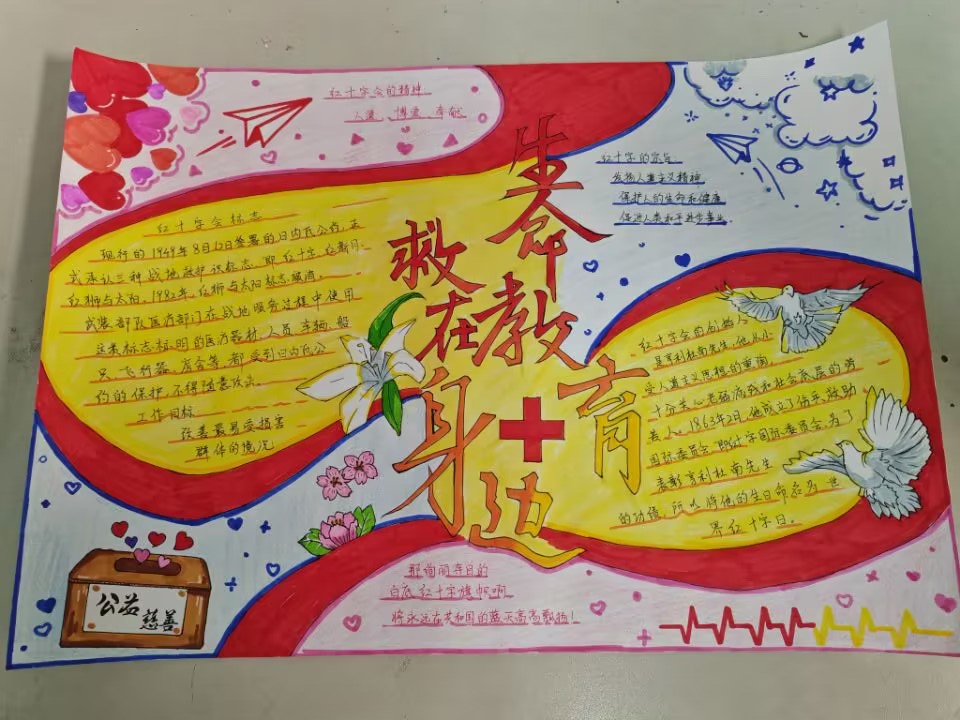 红十字会的精神
人道、博爱、奉献
红十字的宗旨
发扬人道主义精神
保护人的生命和健康
促进人类和平进步事业
生命教育
救在身边
红十字会标志
现行的1949年8月12日签署的日内瓦公约,正
式承认三种战地救护识标志,即红十字、红新月、
红狮与太阳。1982年,红狮与太阳标志被
武装部队医疗部门在战地服务过程中使用
这类标志标明的医疗器材、人员、车辆、船
只、飞行器、房舍等,都受到日内瓦公
约的保护,不得随意攻击。
工作目标
改善最易受损害
群体的境况
红十字会的创始人
是亨利杜南先生,他从小
受人道主义思想的熏陶
十分关心老弱病残和社会底层的劳
苦人。1863年2月,他成立了伤兵救助
国际委员会,即红十字国际委员会,为了
表彰亨利杜南先生
的功绩,所以将他的生日命名为世
界红十字日。
公益
慈善
那绚丽夺目的
白底红十字旗帜啊
将永远在共和国的蓝天高高飘扬!